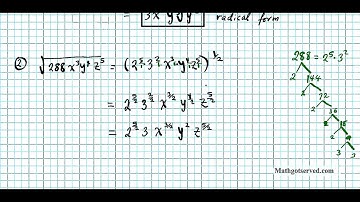 = 3x⁴y√y radical form
② √(288x³y⁴z⁵) = (2⁵·3²·x³·y⁴·z⁵)^(1/2)
= 2^(5/2) 3^(2/2) x^(3/2) y^(4/2) z^(5/2)
= 2^(5/2) 3 x^(3/2) y² z^(5/2)
288 = 2⁵·3²
2 144
2 72
2 36
2 18
2 9
3 3
Mathgotserved.com